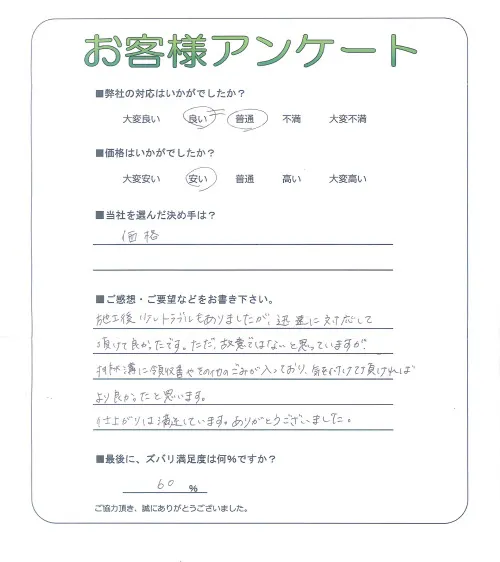 お客様アンケート
■弊社の対応はいかがでしたか？
大変良い 良い 普通 不満 大変不満
■価格はいかがでしたか？
大変安い 安い 普通 高い 大変高い
■当社を選んだ決め手は？
価格
■ご感想・ご要望などをお書き下さい。
施工後少しトラブルもありましたが、迅速に対応して
頂けて良かったです。ただ、故意ではないと思っていますが
排水溝に領収書やその他のごみが入っており、気を付けて頂ければ
より良かったと思います。
仕上がりは満足しています。ありがとうございました。
■最後に、ズバリ満足度は何％ですか？
60 ％
ご協力頂き、誠にありがとうございました。